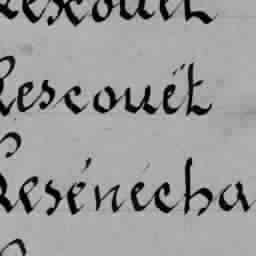 Lescouët
Lescouët
Lesénécha